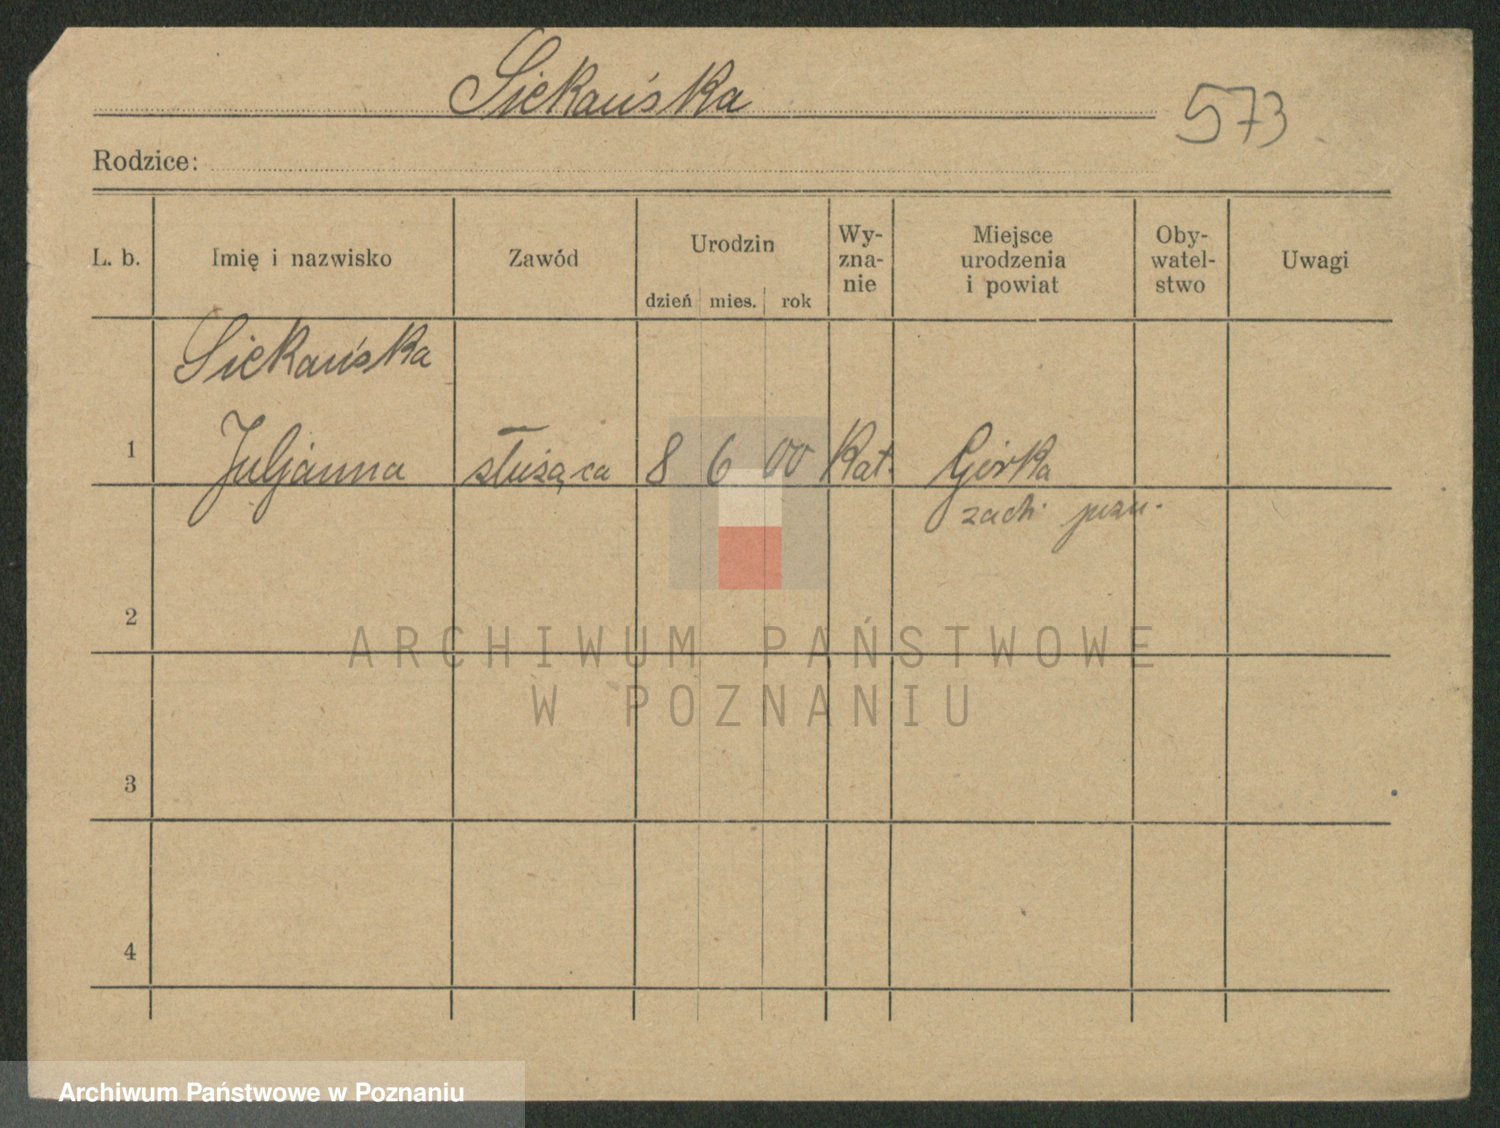 Siekańska
573
Rodzice:
L. b. Imię i nazwisko Zawód Urodzin dzień mies. rok Wy-znanie Miejsce urodzenia i powiat Oby-watel-stwo Uwagi
Siekańska
1 Juljanna służąca 8 6 00 Kat. Górka
zach. pozn.
2
ARCHIWUM PAŃSTWOWE
W POZNANIU
3
4
Archiwum Państwowe w Poznaniu